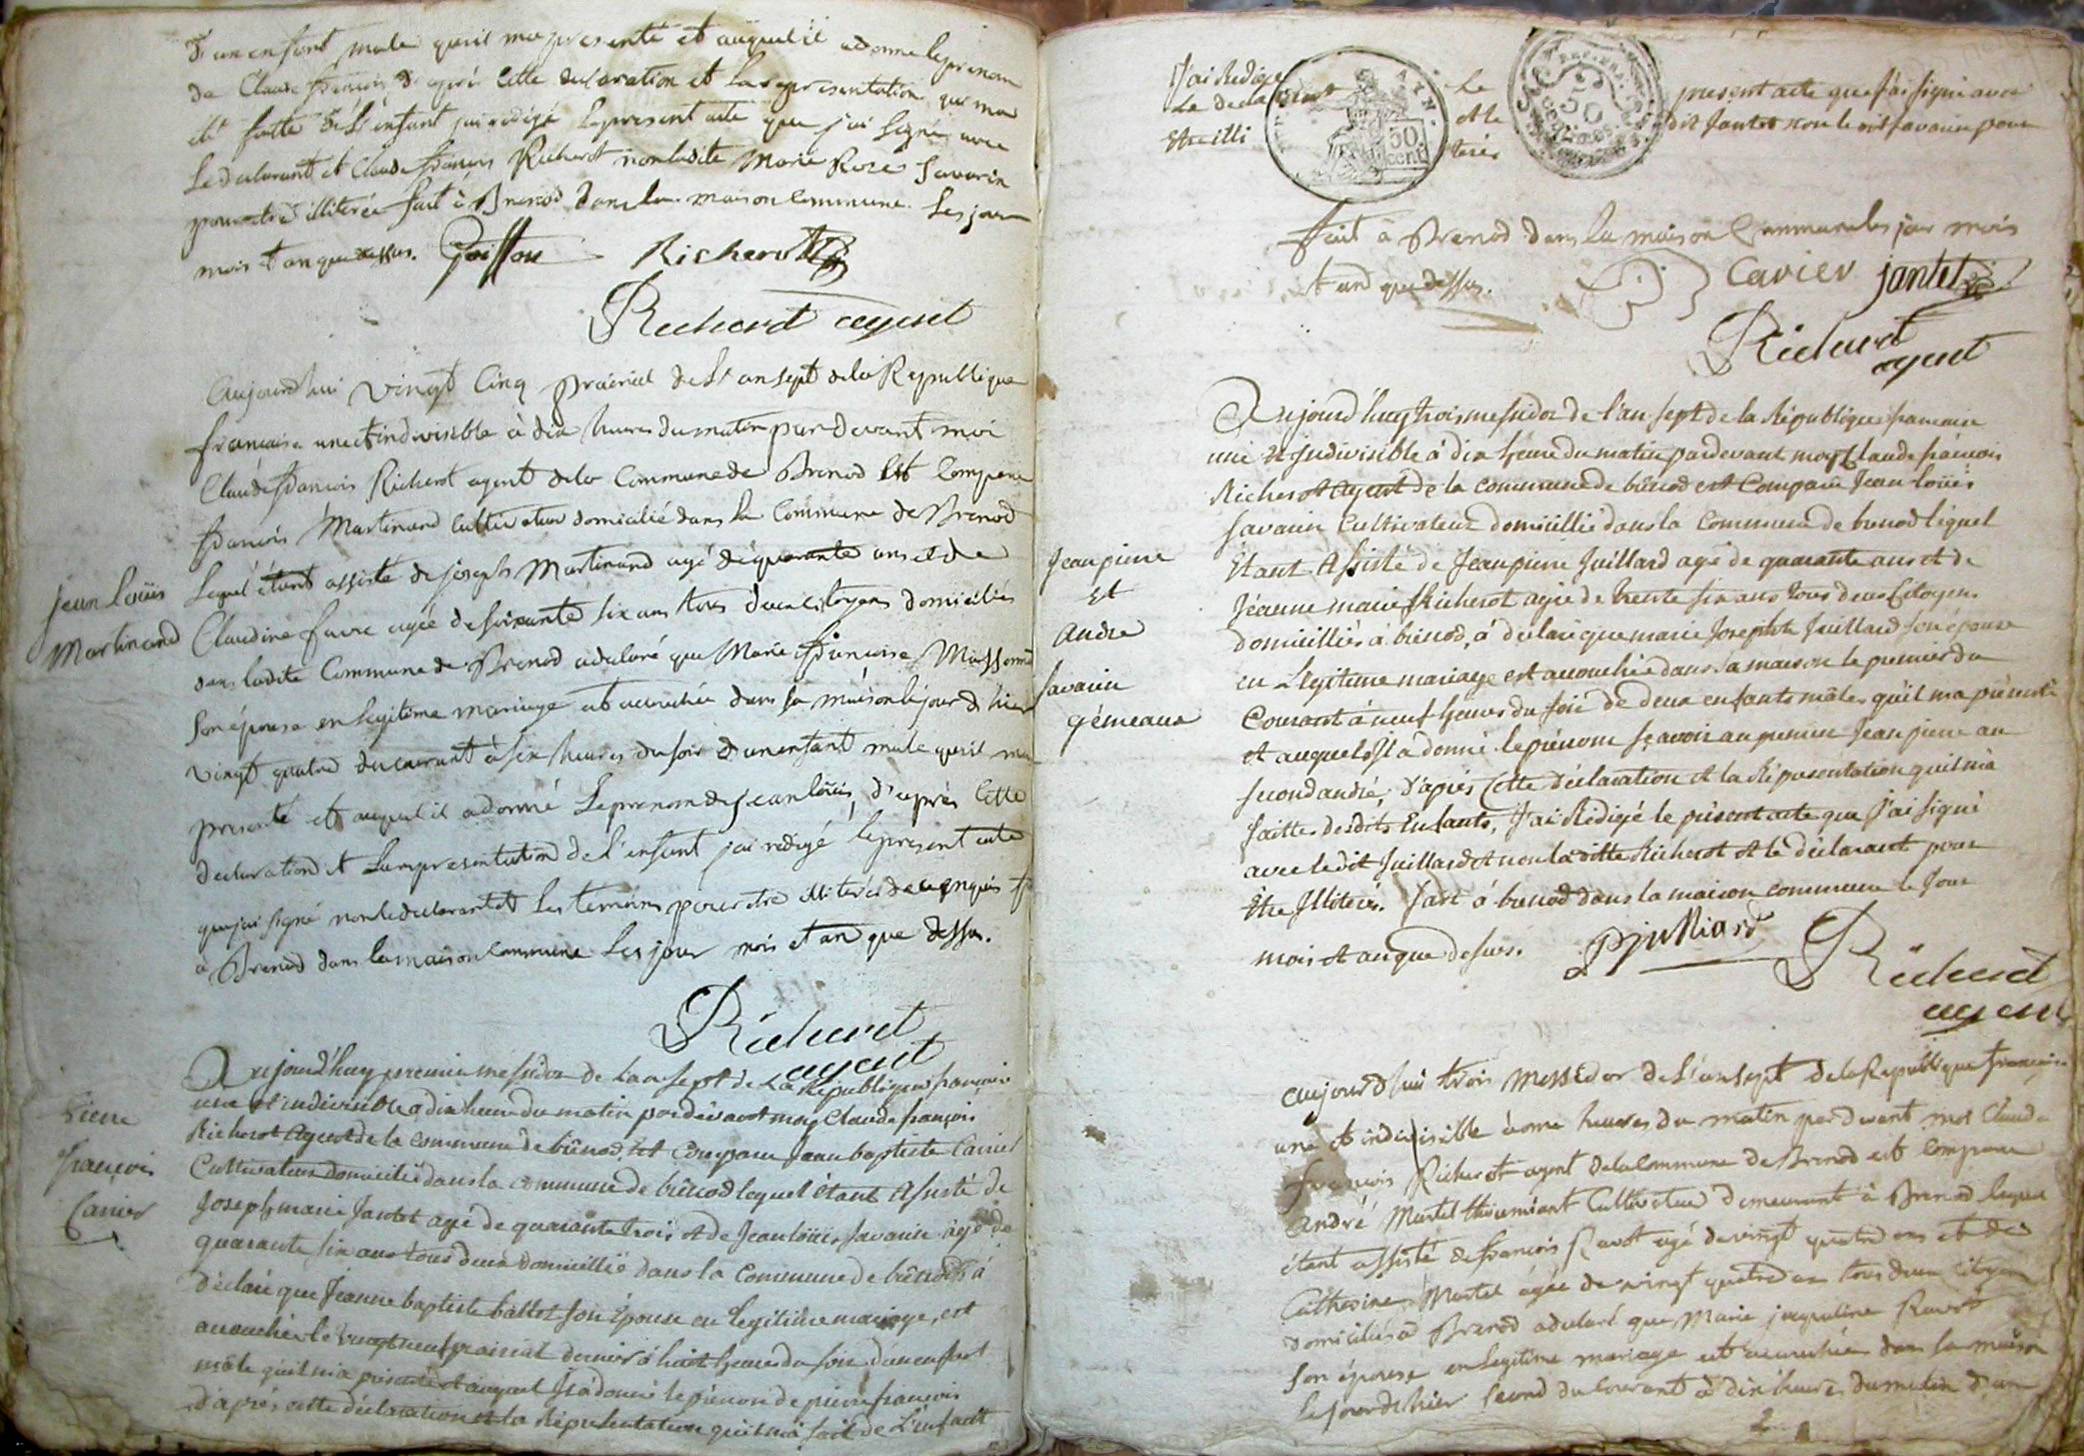 d'un enfant male qu'il ma presenté et auquel il a donné le prenom
de Claude françois d'aprés cette declaration et la representation qui ma
été faitte de l'enfant jai redigé le present acte que j'ai signé avec
le declarant et Claude françois Richerot non ladite Marie Roze Savarin
pour etre illiterée fait à Brenod dans la maison Commune les jour
mois et an que dessus. Goiffon Richerot
Richerot agent
Aujourdhui vingt Cinq prairial de l'an sept de la Republique
française une et indivisible à dix heures du matin par devant moi
Claude françois Richerot agent de la Commune de Brenod est Comparu
françois Martinand Cultivateur domicilié dans la Commune de Brenod
jean loüis
Martinand
Lequel étant assisté de joseph Martinand agé de quarante ans et de
Claudine favre agée de soixante six ans tous deux Citoyens domiciliés
dans ladite Commune de Brenod a declaré que Marie françoise
Son épouse en legitime mariage est accouchée dans sa maison le jour d'hier
vingt quatre du courant à six heures du soir d'un enfant male qu'il ma
presenté et auquel il a donné le prenom de jean loüis, d'aprés Cette
declaration et la representation de l'enfant j'ai redigé le present acte
que jai signé non le declarant et les temoins pour etre illiterés de ce enquis
à Brenod dans la maison Commune les jour mois et an que dessus.
Richerot
agent
Aujourd'huy premier messidor de l'an sept de la République francaise
une et indivisible a dix heure du matin pardevant moy Claude françois
Richerot Agent de la commune de brênod, est Comparu Jean baptiste Carrier
pierre
françois
Carrier
Cultivateur domicilié dans la commune de brênod lequel étant Assisté de
Joseph marie Jantet agé de quarante trois et de Jean loüis Savarin agé de
quarante six ans tous deux domicillié dans la Commune de brênod à
déclaré que Jeanne baptiste ballet son Épouse en legitime mariage, est
accouchée le vingt neuf prairial dernier à huit heures du soir d'un enfant
mâle quil m'a présenté et auquel Il à donné le prénom de pierre françois
d'après cette déclaration et la Réprésentation quil m'a fait de L'enfant
J'ai Redigé le present acte que j'ai signé avec
le declarant et le dit Jantet non le dit Savarin pour
Etre illiterés
50 cent
fait à Brenod dans la maison Commune les jour mois
et an que dessus.
Carier jantet
Richerot
agent
Aujourd'huy trois messidor de l'an sept de la République francaise
une et Indivisible à dix heure du matin pardevant moy Claude françois
Richerot Agent de la commune de brênod est Comparu Jean loüis
Savarin Cultivateur domicillié dans la commune de brenod lequel
Jean pierre
et
andré
Savarin
gémeaux
Etant Assisté de Jean pierre Juillard agé de quarante ans et de
Jéanne marie Richerot agée de trente six ans tous deux Citoyens
domicilliés à brenod, à déclaré que marie Josephte Juillard son épouse
en Légitime mariage est accouchée dans sa maison le premier du
Courant à neuf heures du soir de deux enfants mâles qu'il ma présenté
et auquels Il a donné le prénom sçavoir au premier Jean pierre au
second andré, d'après Cette déclaration et la Réprésentation quil m'a
faitte desdits Enfants, J'ai Rédigé le présent acte que j'ai signé
avec le dit Juillard et non la ditte Richerot et le déclarant pour
être Illiterés. fait à brenod dans la maison commune le Jour
mois et an que desus. Pjulliard Richerot
agent
aujourdhui trois Messidor de l'an sept de la Republique française
une et indivisible à onze heures du matin par devant moi Claude
françois Richerot agent de la Commune de Brenod est Comparu
andré Martel Cultivateur demeurant à Brenod lequel
étant assisté de françois Ravot agé de vingt quatre ans et de
Catherine Martel agée de vingt quatre an tous deux Citoyens
domiciliés à Brenod a declaré que Marie jacqueline Ravot
Son épouse en legitime mariage est accouchée dans sa maison
le jour d'hier second du Courant à dix heures du matin d'un